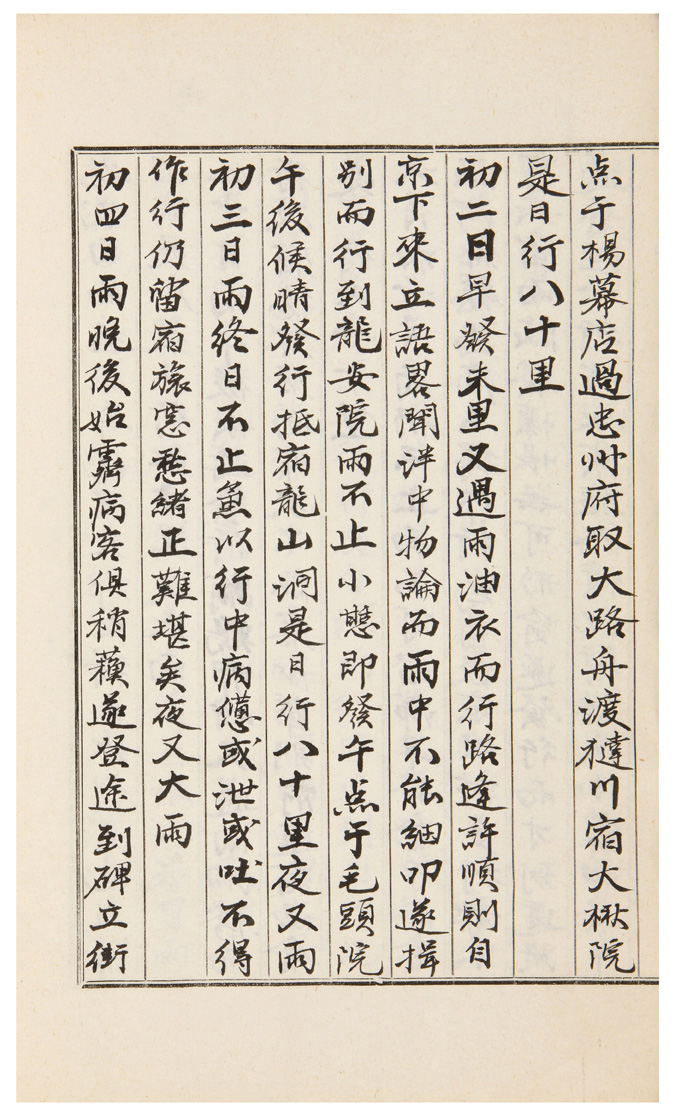 点于楊幕店過忠州府取大路舟渡㺚川宿大楸院
是日行八十里
初二日早發未里又遇雨油衣而行路逢許順則自
京下來立語畧聞泮中物論而雨中不能細叩遂揖
別而行到龍安院雨不止小憇即發午点于毛頭院
午後候晴發行抵宿龍山洞是日行八十里夜又雨
初三日雨終日不止兼以行中病憊或泄或吐不得
作行仍留宿旅窓愁緖正難堪矣夜又大雨
初四日雨晚後始霽病客俱稍蘇遂登途到碑立街